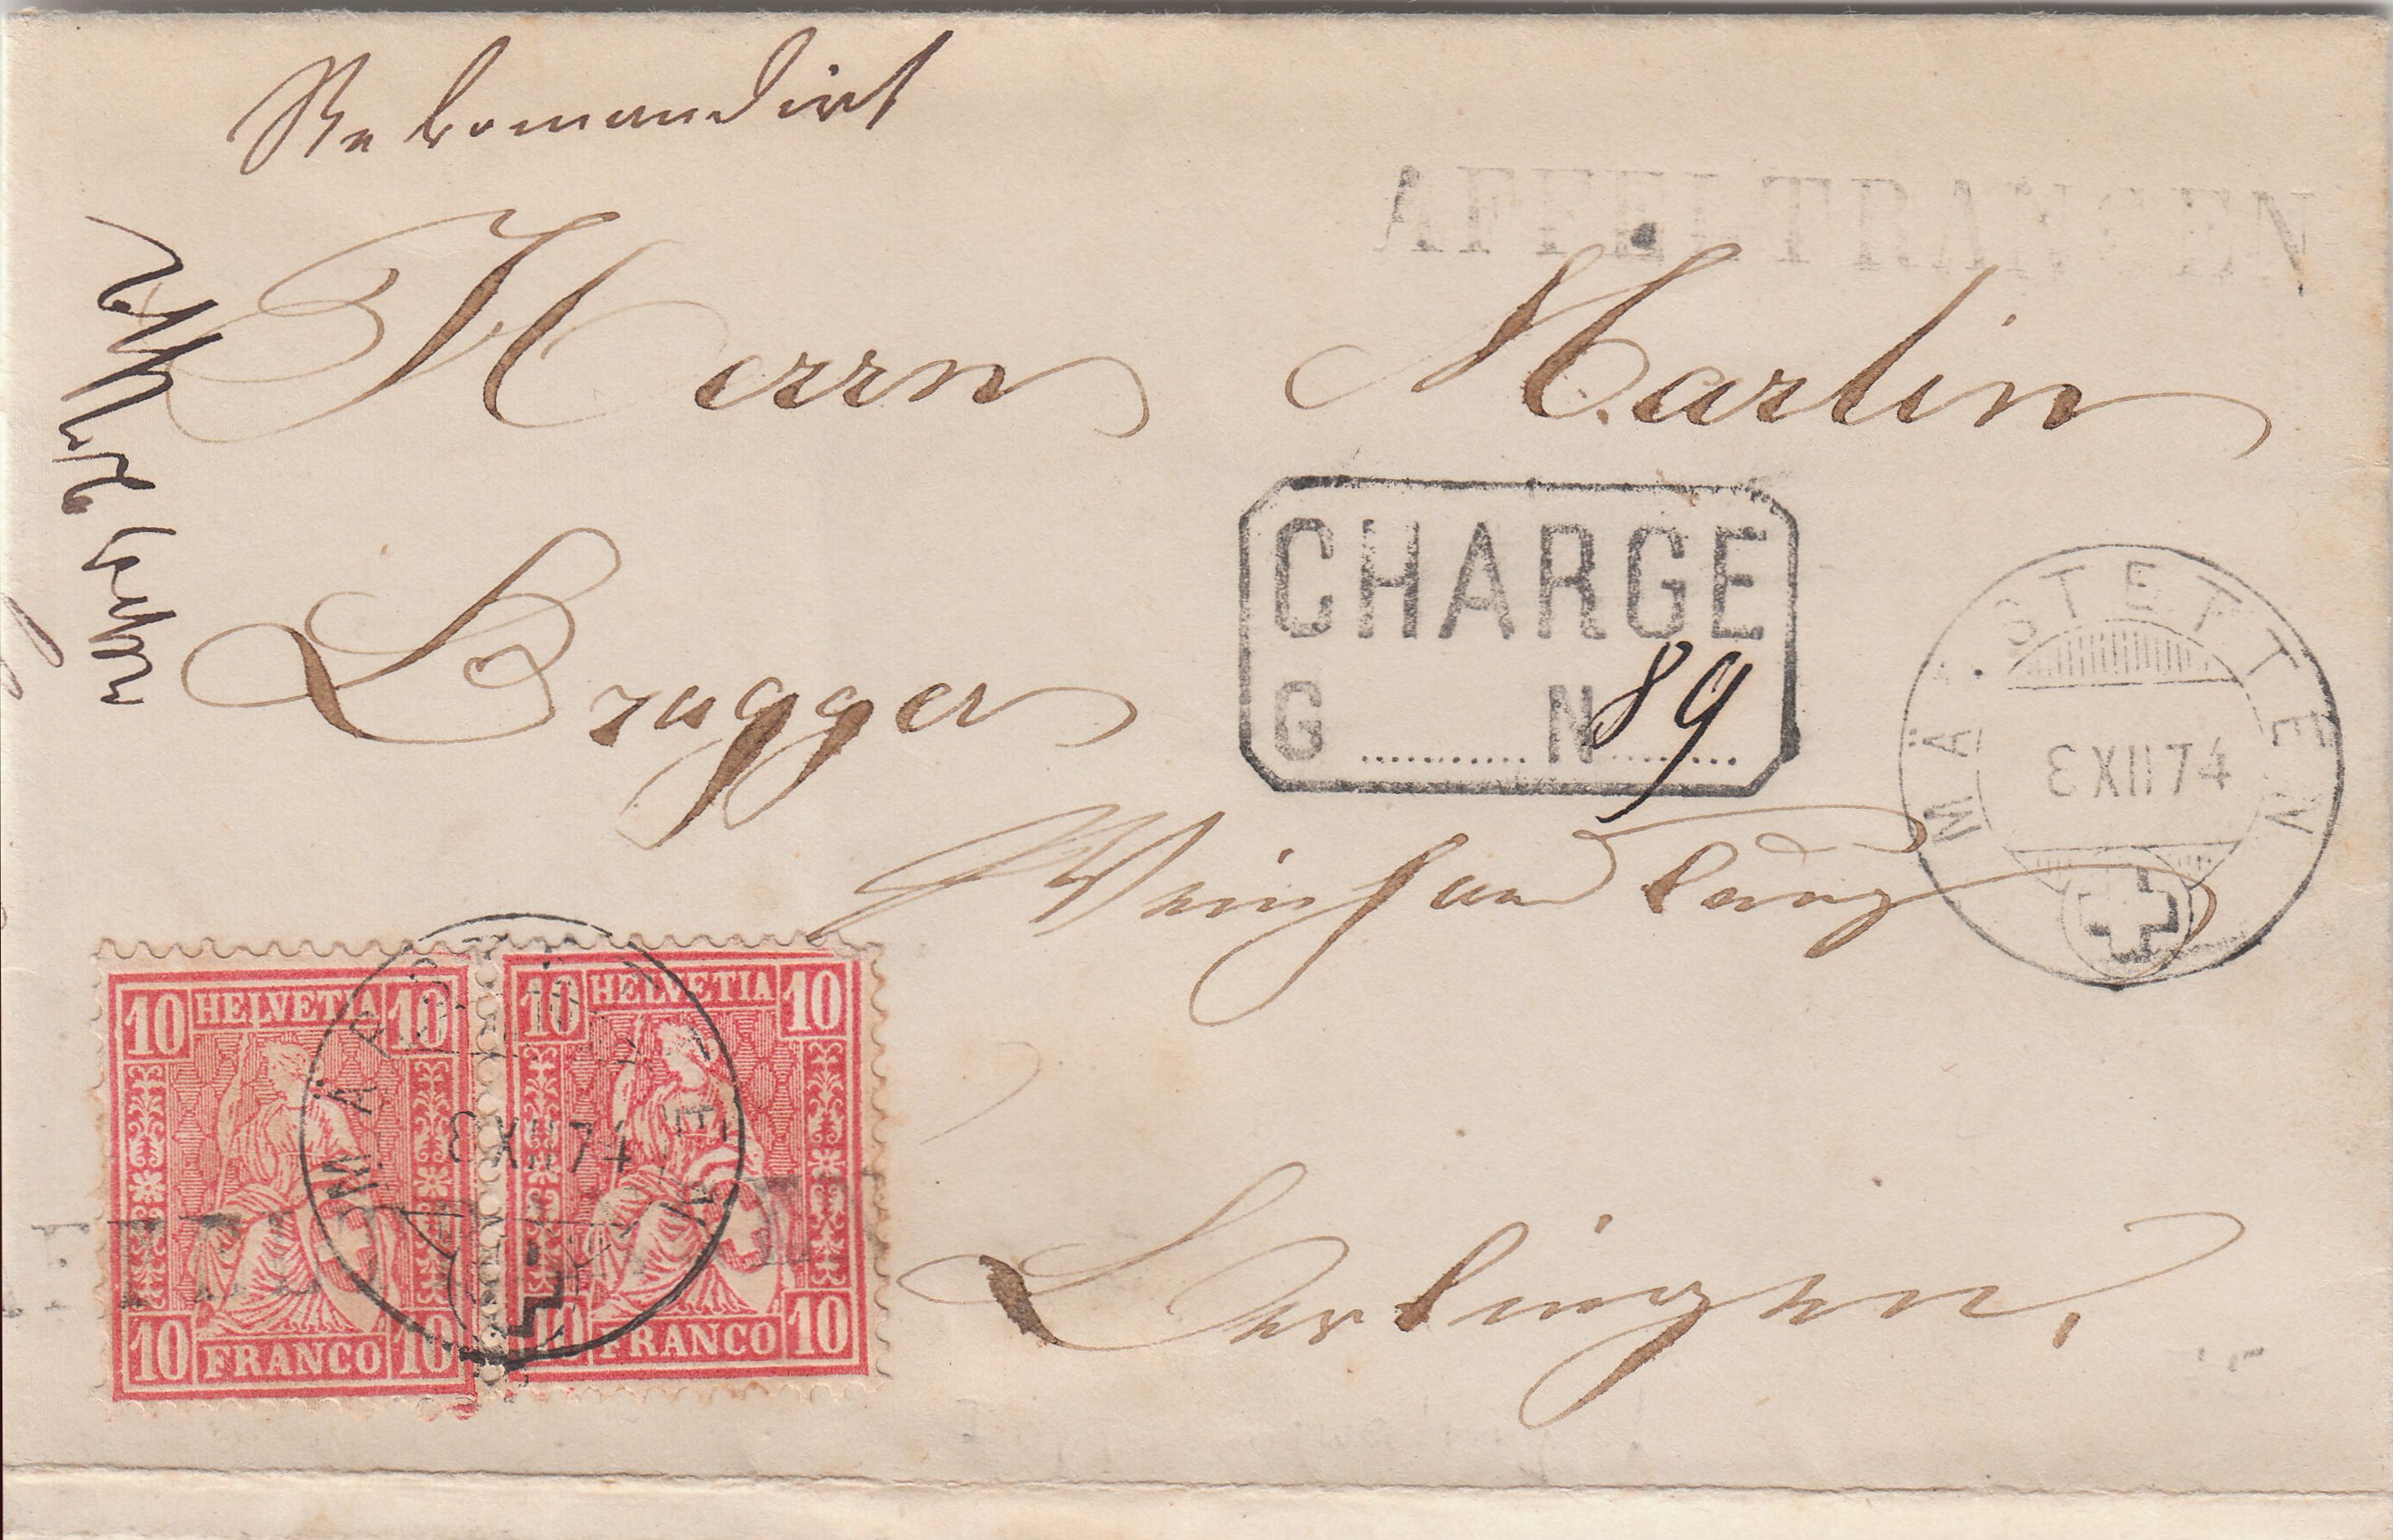 Rekomandirt
AFFELTRANGEN
Herrn Martin
CHARGE
G N 89
MÄRSTETTEN
8 XII 74
Brugger
Weinhandlung
10 HELVETIA 10
10 FRANCO 10
10 HELVETIA 10
10 FRANCO 10
MÄRSTETTEN
8 XII 74
Berlingen,